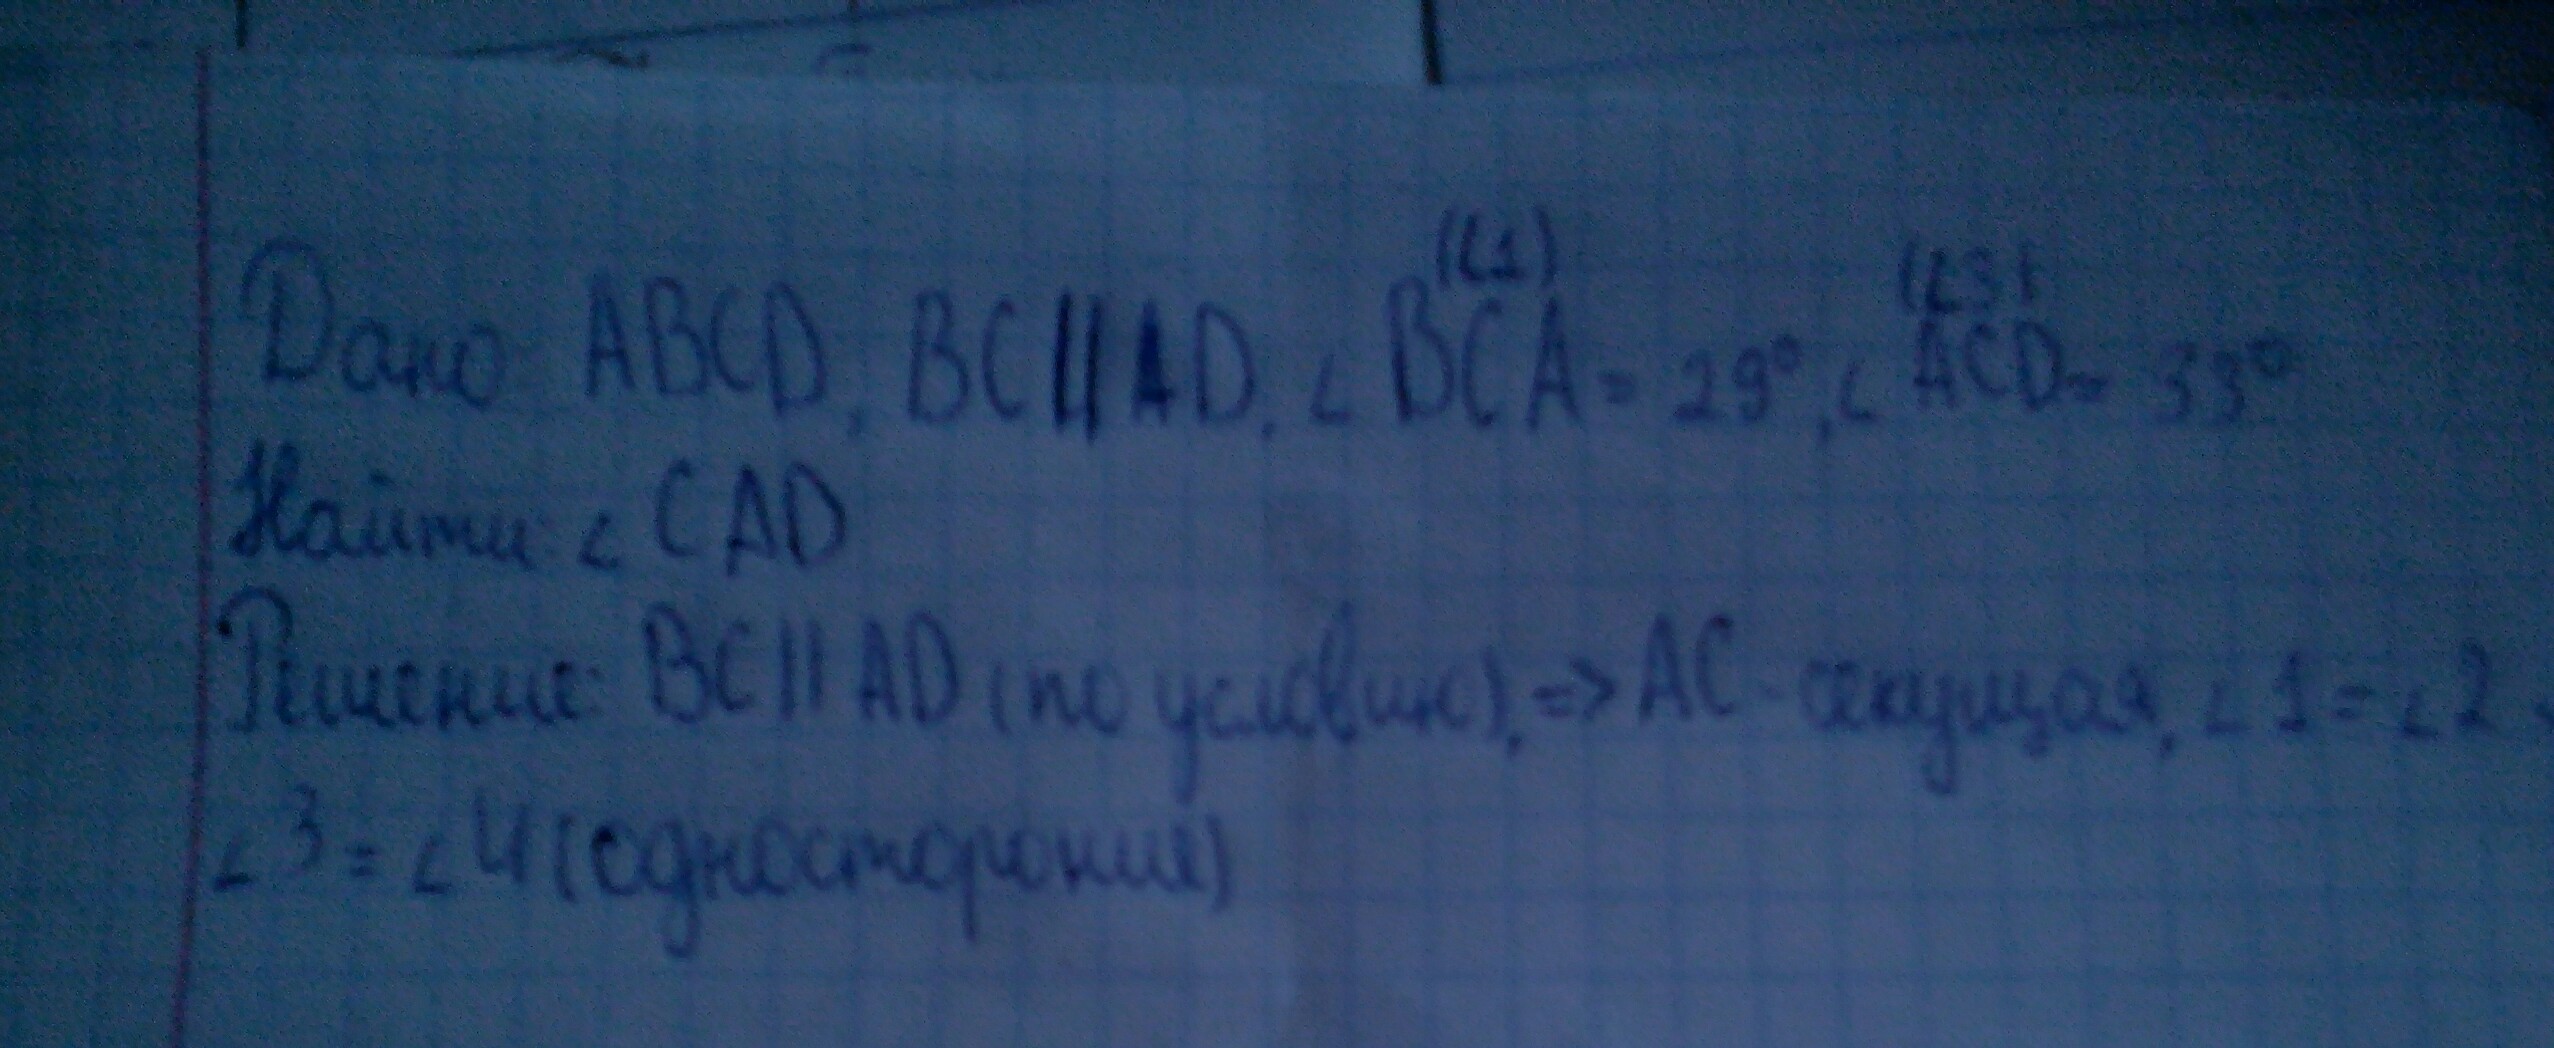 (∠1) (∠3)
Дано ABCD, BC||AD, ∠ BCA = 29°, ∠ ACD = 33°
Найти: ∠ CAD
Решение: BC||AD (по условию), => AC - секущая, ∠1 = ∠2
∠3 = ∠4 (односторонние)